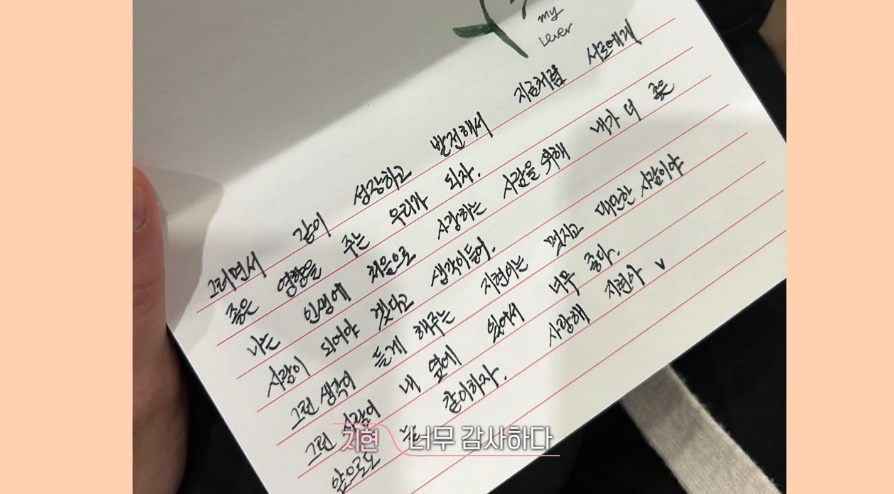 my
Lever
그러면서 같이 성장하고 발전해서 지금처럼 서로에게
좋은 영향을 주는 우리가 되자.
나는 인생에 처음으로 사랑하는 사람을 위해 내가 더 좋은
사람이 되어야 겠다고 생각이들어.
그런 생각이 들게 해주는 지현이는 멋지고 대단한 사람이야
그런 사람이 내 옆에 있어서 너무 좋아.
앞으로도 같이하자. 사랑해 지현아
지현 너무 감사하다